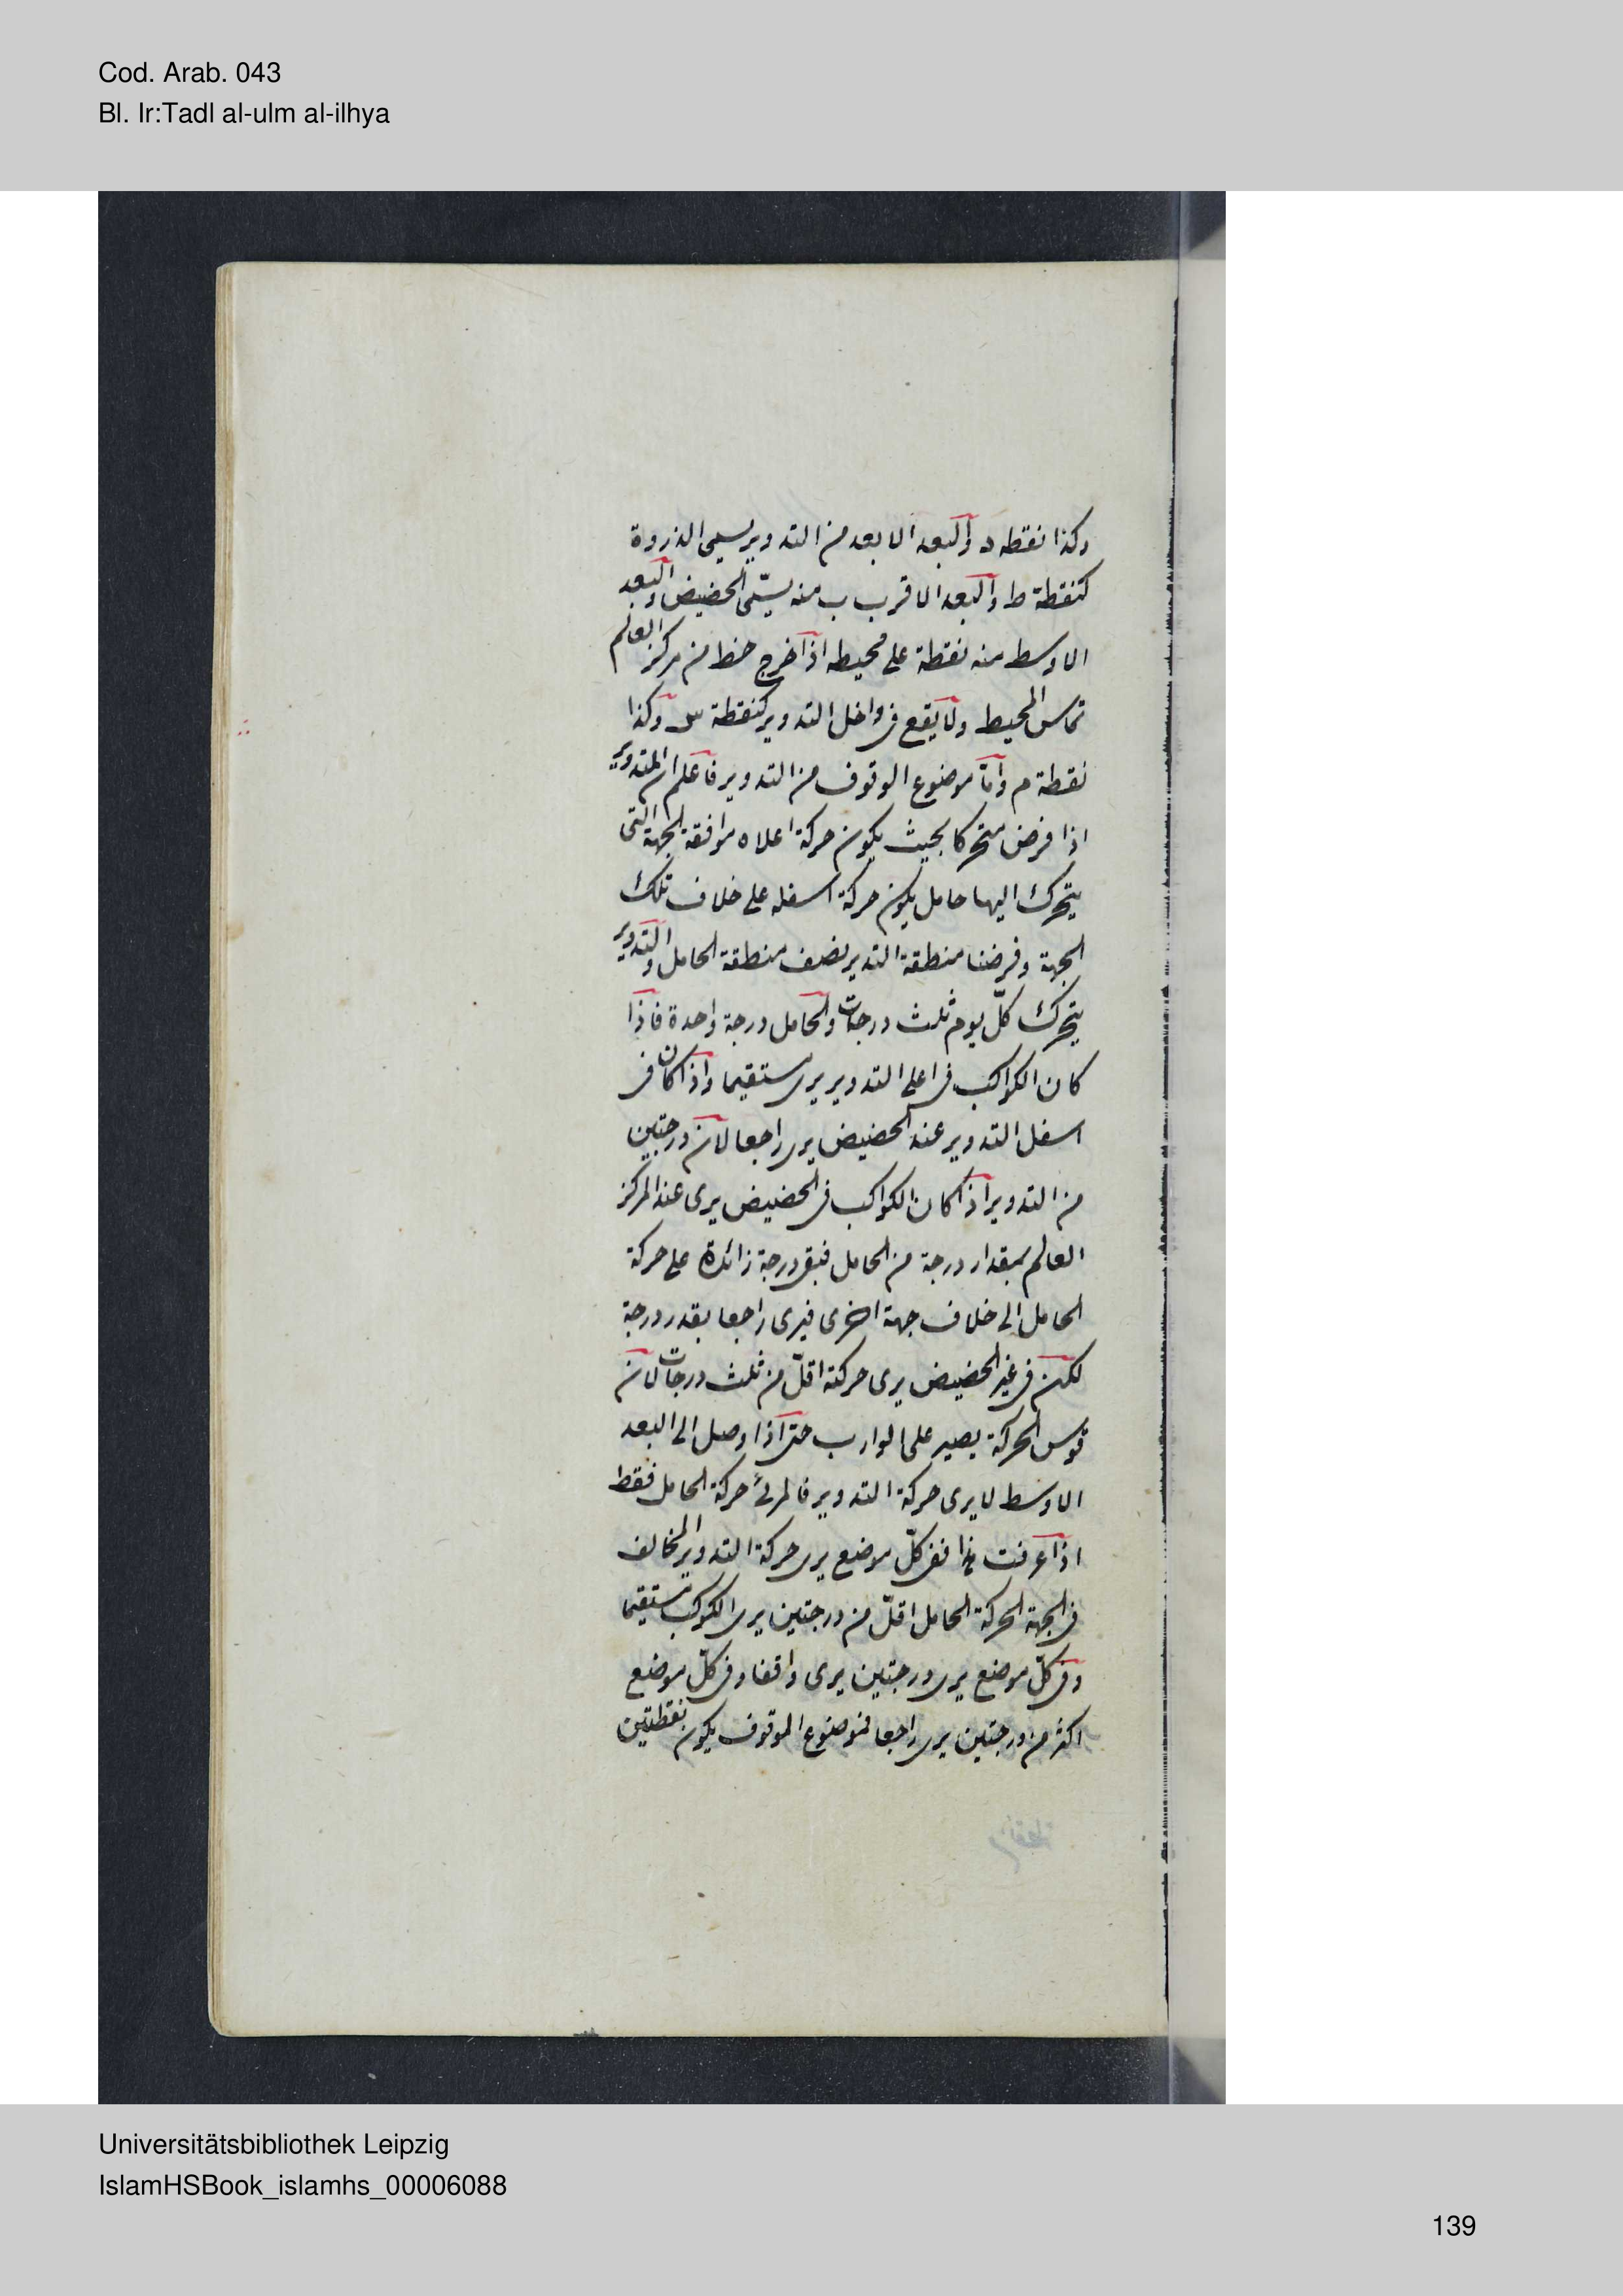 Cod. Arab. 043
Bl. Ir:Tadl al-ulm al-ilhya
وكذا نقطه د والبعد الابعد من التدوير يسمى الذروة
كنقطة ط والبعد الاقرب ب منه يسمّى الحضيض والبعد
الاوسط منه نقطة على محيطه اذا خرج خط من مركز العالم
تماس المحيط ولا يقع فى داخل التدوير كنقطة س وكذا
نقطة م وامّا موضوع الوقوف من التدوير فاعلم ان التدوير
اذا فرض متحركا بحيث يكون حركة اعلاه موافقة لجهة التى
يتحرك اليها حامل يكون حركة اسفله على خلاف تلك
الجهة وفرضنا منطقة التدير نصف منطقة الحامل والتدوير
يتحرك كلّ يوم ثلث درجات والحامل درجة واحدة فاذا
كان الكواكب فى اعلى التدوير يرى مستقيما واذا كان فى
اسفل التدوير عند الحضيض يرى راجعا لان درجتين
من التدوير اذا كان الكواكب فى الحضيض يرى عند المركز
العالم بمقدار درجة من الحامل فبقى درجة زائدة على حركة
الحامل الى خلاف جهة اخرى فيرى راجعا بقدر درجة
لكن فى غير الحضيض يرى حركته اقلّ من ثلث درجات لان
قوس الحركة يصير على الوارب حتى اذا وصل الى البعد
الاوسط لا يرى حركة التدوير فالمرئ حركة الحامل فقط
اذا عرفت هذا ففى كلّ موضع يرى حركة التدوير المخالف
فى الجهة الحركة الحامل اقلّ من درجتين يرى الكوكب مستقيما
وفى كلّ موضع يرى درجتين يرى واقفا وفى كلّ موضع
اكثر من درجتين يرى راجعا فموضوع الموقوف يكون نقطتين
Universitätsbibliothek Leipzig
IslamHSBook_islamhs_00006088
139